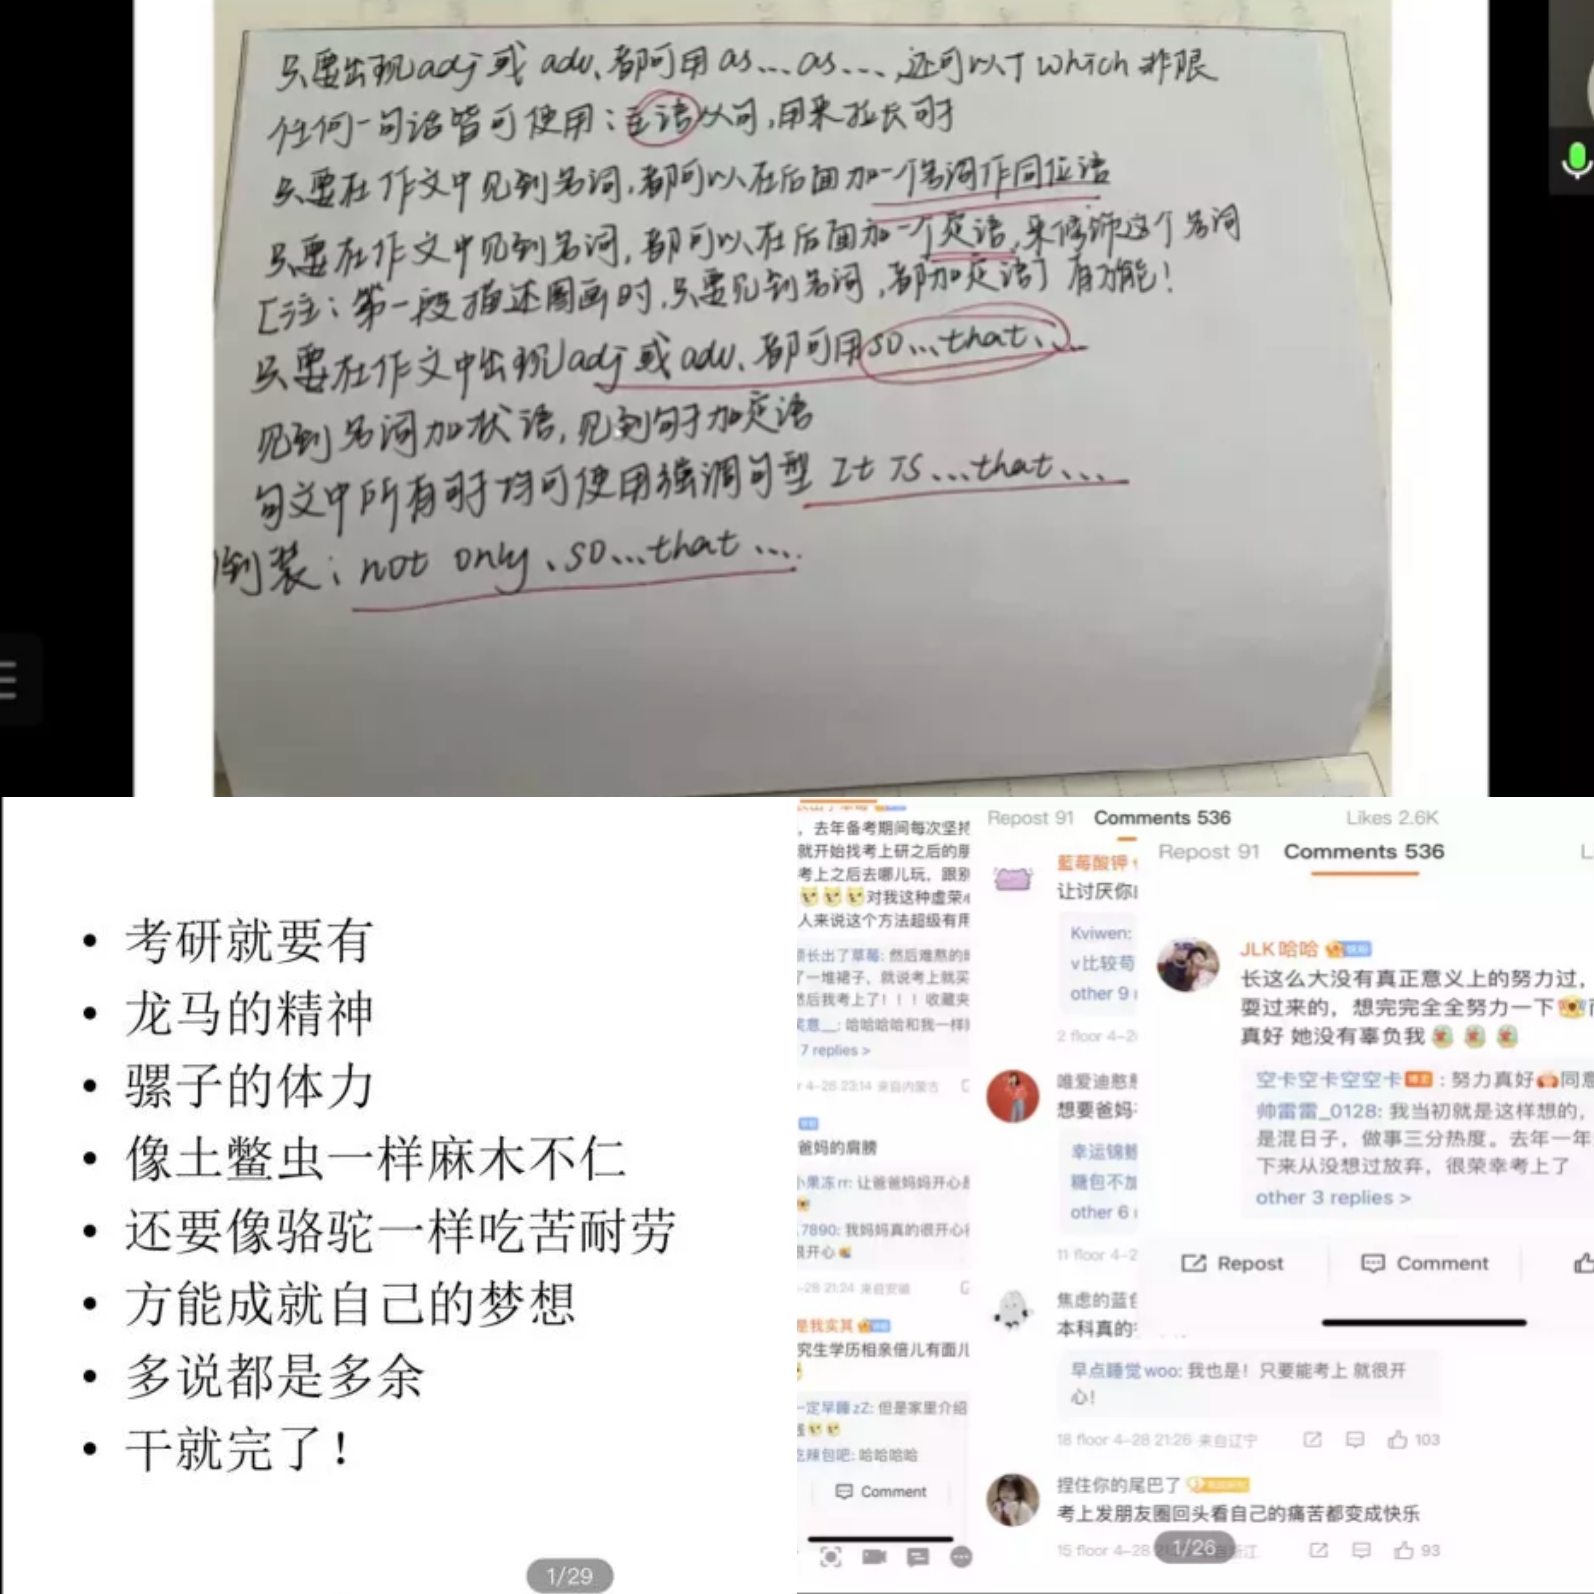 只要出现adj或 adv、都可用 as...as...,还可以丁which非限
任何一句话皆可使用:主语从句,用来拉长句子
只要在作文中见到名词,都可以在后面加一个名词作同位语
只要在作文中见到名词,都可以在后面加一个定语,来修饰这个名词
[注:第一段描述图画时,只要见到名词,都加定语] 有功能!
只要在作文中出现adj或adv、都可用so...that...
见到名词加状语,见到句子加定语
句文中所有句子均可使用强调句型 It is...that...
倒装:not only、so...that....
• 考研就要有
• 龙马的精神
• 骡子的体力
• 像土鳖虫一样麻木不仁
• 还要像骆驼一样吃苦耐劳
• 方能成就自己的梦想
• 多说都是多余
• 干就完了!
1/29
,去年备考期间每次坚持
就开始找考上研之后的朋
考上之后去哪儿玩,跟别
对我这种虚荣心
人来说这个方法超级有用
长出了草莓: 然后难熬的时
了一堆裙子,就说考上就买
然后我考上了!!!收藏夹
笑意__: 哈哈哈哈和我一样
7 replies >
4-28 23:14 来自内蒙古
爸妈的肩膀
小果冻rr: 让爸爸妈妈开心是
7890: 我妈妈真的很开心很
很开心
-28 21:24 来自安徽
是我实其
究生学历相亲倍儿有面儿
一定早睡zZ: 但是家里介绍
吃辣包吧: 哈哈哈哈
Comment
Repost 91 Comments 536 Likes 2.6K
藍莓酸钾
让讨厌你
Kviwen:
v比较苟
other 9
2 floor 4-2
唯爱迪憨憨
想要爸妈
幸运锦鲤
糖包不加
other 6
11 floor 4-2
焦虑的蓝色
本科真的
早点睡觉woo: 我也是!只要能考上 就很开
心!
18 floor 4-28 21:26 来自辽宁 103
捏住你的尾巴了
考上发朋友圈回头看自己的痛苦都变成快乐
15 floor 4-28 浙江 93
1/26
Repost 91 Comments 536 L
JLK哈哈
长这么大没有真正意义上的努力过,
耍过来的,想完完全全努力一下
真好 她没有辜负我
空卡空卡空空卡 : 努力真好 同意
帅雷雷_0128: 我当初就是这样想的,
是混日子,做事三分热度。去年一年
下来从没想过放弃,很荣幸考上了
other 3 replies >
Repost Comment